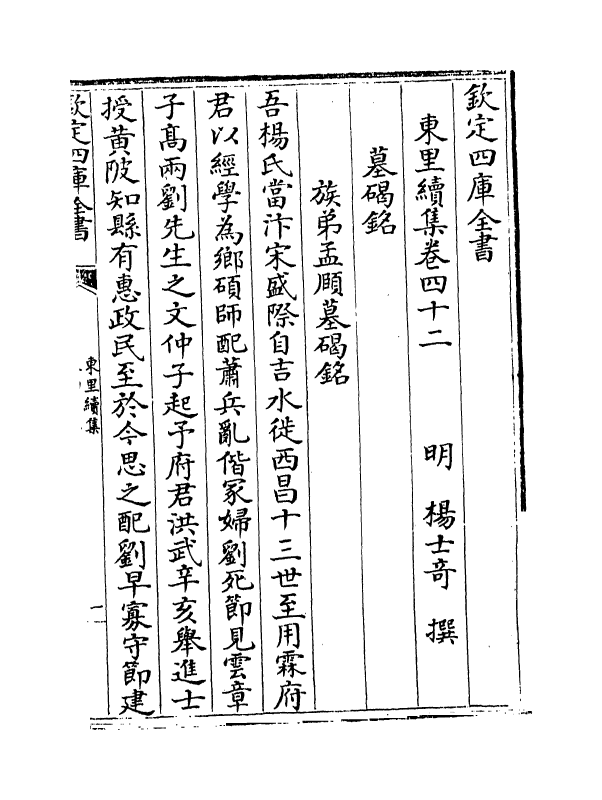 欽定四庫全書
東里續集卷四十二　　明　楊士奇　撰
墓碣銘
族弟孟頤墓碣銘
吾楊氏當汴宋盛際自吉水徙西昌十三世至用霖府
君以經學為鄉碩師配蕭兵亂偕冢婦劉死節見雲章
子髙兩劉先生之文仲子起予府君洪武辛亥舉進士
授黄陂知縣有惠政民至於今思之配劉早寡守節建
欽定四庫全書
東里續集
一